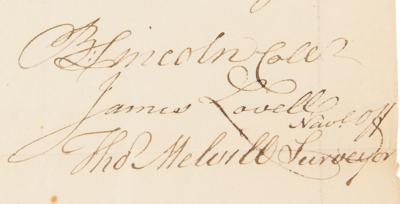 B: Lincoln Coll
James Lovell Navl Off
Thos Melvill Surveyor